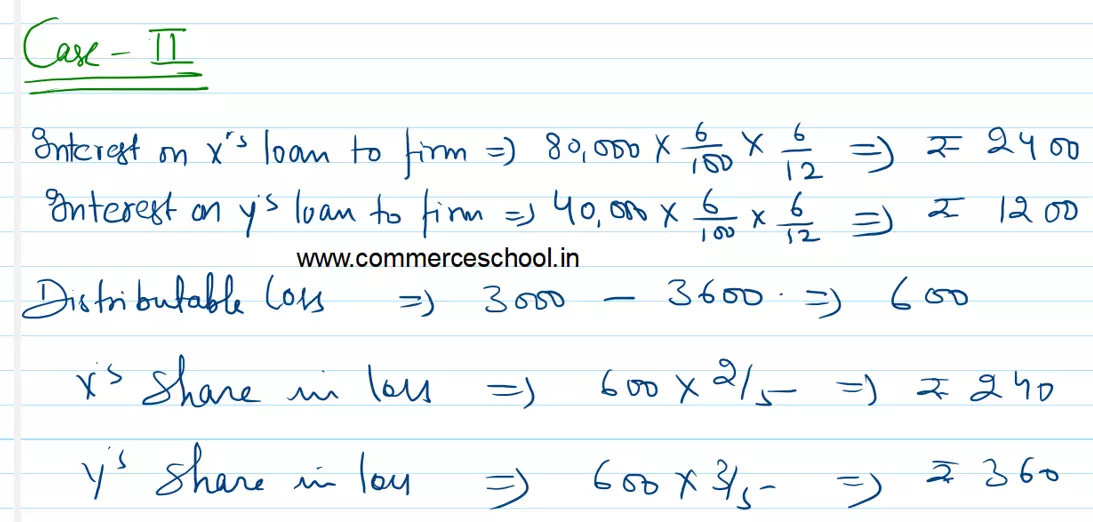 Case - II
Interest on x's loan to firm => 80,000 × 6/100 × 6/12 => ₹ 2400
Interest on y's loan to firm => 40,000 × 6/100 × 6/12 => ₹ 1200
www.commerceschool.in
Distributable loss => 3000 - 3600 => 600
x's share in loss => 600 × 2/5 => ₹ 240
y's share in loss => 600 × 3/5 => ₹ 360